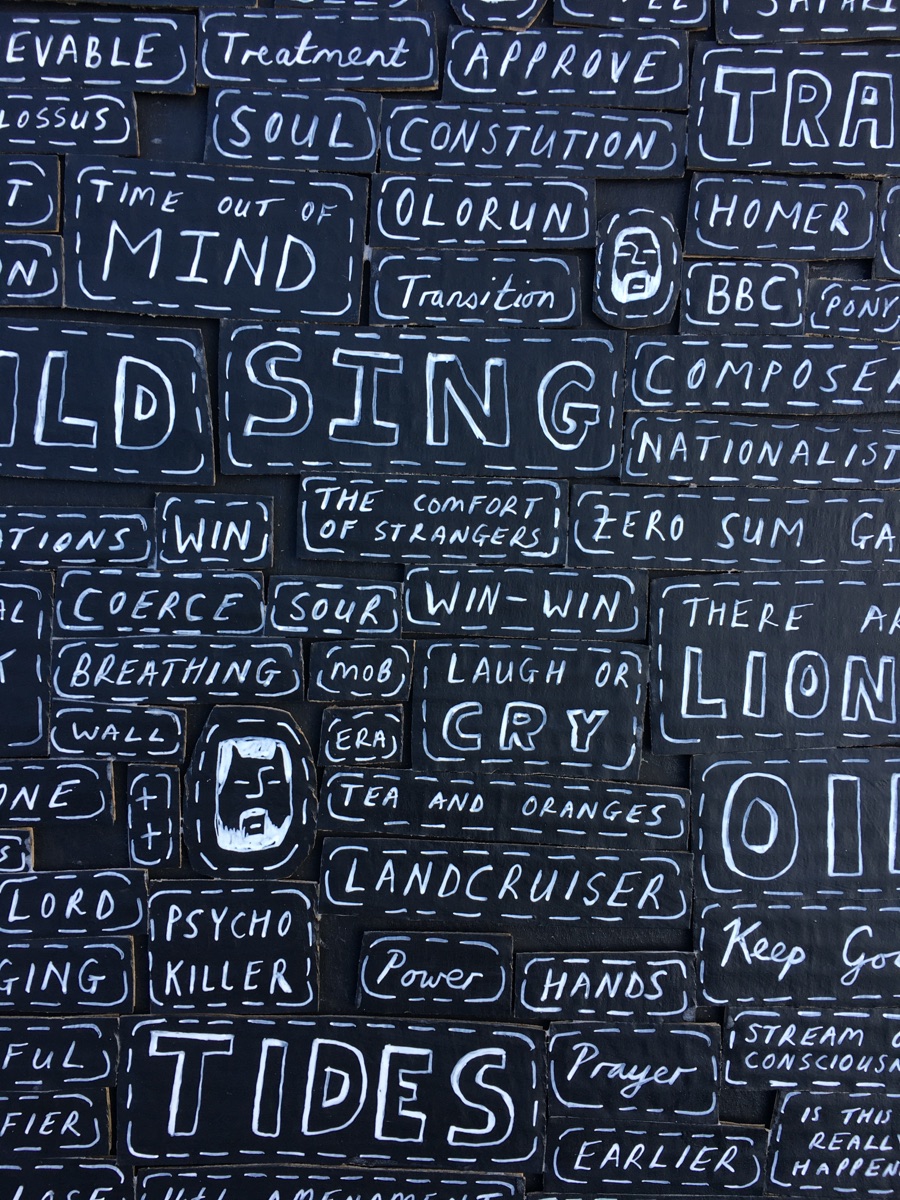 EVABLE
Treatment
APPROVE
SAFARI
TRA
LOSSUS
SOUL
CONSTUTION
T
TIME OUT OF
MIND
OLORUN
HOMER
N
Transition
BBC
PONY
ILD
SING
COMPOSER
NATIONALIST
THE COMFORT
OF STRANGERS
ZERO SUM GA
ATIONS
WIN
AL
COERCE
SOUR
WIN-WIN
THERE AR
LION
K
BREATHING
MOB
LAUGH OR
CRY
WALL
ERA
ONE
+
+
TEA AND ORANGES
OIL
S
LANDCRUISER
LORD
PSYCHO
KILLER
Keep Goo
GING
Power
HANDS
FUL
TIDES
Prayer
STREAM O
CONSCIOUSN
FIER
EARLIER
IS THIS
REALLY
HAPPEN
LASE
AMENAMENT